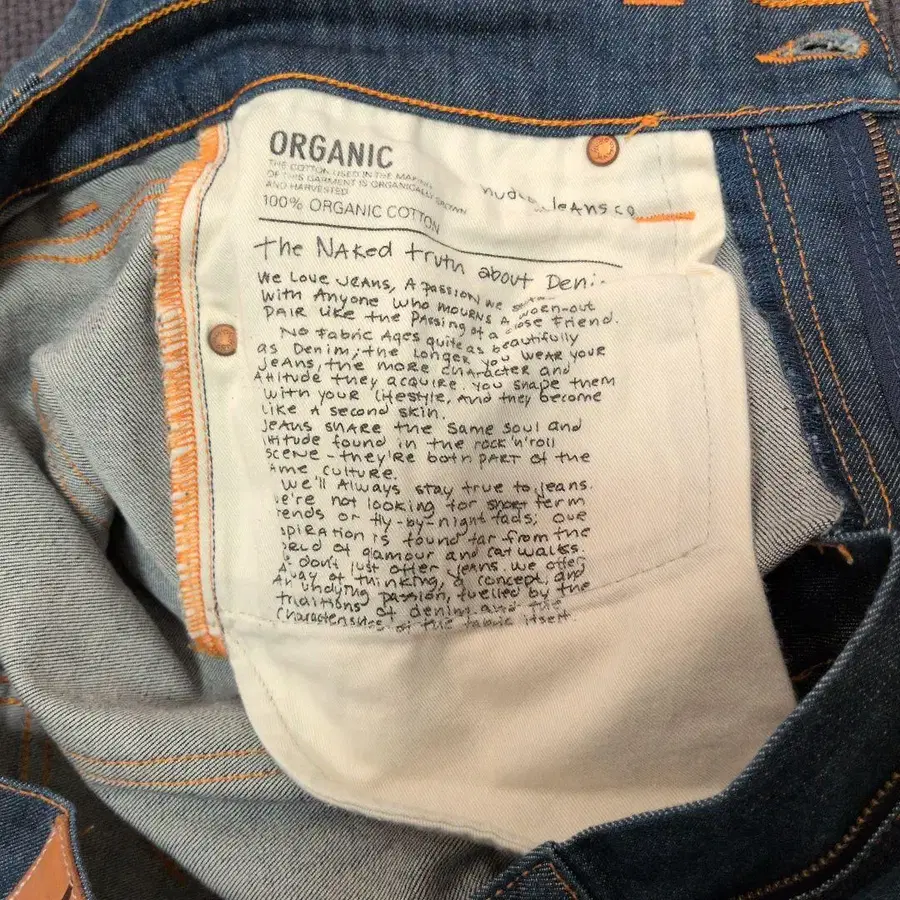 ORGANIC
THE COTTON USED IN THE
OF THIS GARMENT IS ORGANICALLY GROWN
AND HARVESTED
100% ORGANIC COTTON
Jeans co
The NAked truth about
We Love JeANS, A PASSION we
With Anyone who MOURNS A worn-out
PAIR Like the PASSing of a close Friend.
No Fabric Ages quite as beautifully
as Denim; the Longer you WEAR YOUR
Jeans, the more character and
Attitude they acquire. You shape them
with your lifestyle, And they become
Like A second skin.
Jeans share the same soul and
found in the rock'n'roll
scene - they're both PART of the
culture.
We'll Always stay true to Jeans.
not looking for short term
or fly-by-night fads; our
is found far from the
of glamour and catwalks.
don't just offer jeans. We offer
of thinking, a concept, and
An undying passion, fuelled by the
traditions of denim and the
of the fabric itself.